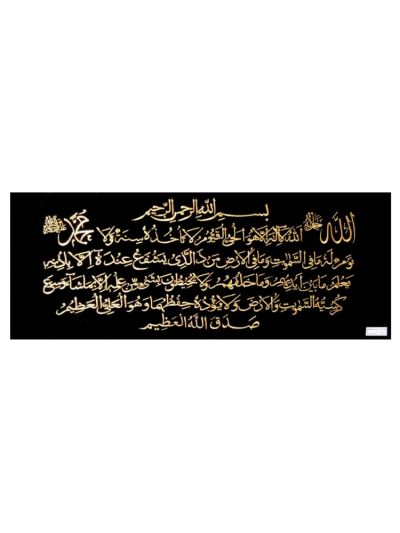 بسم الله الرحمن الرحيم
الله جل جلاله الله لا اله الا هو الحي القيوم لا تأخذه سنة ولا محمد
نوم له ما في السموات وما في الارض من ذا الذي يشفع عنده الا باذنه
يعلم ما بين ايديهم وما خلفهم ولا يحيطون بشيء من علمه الا بما شاء وسع
كرسيه السموات والارض ولا يؤده حفظهما وهو العلي العظيم
صدق الله العظيم